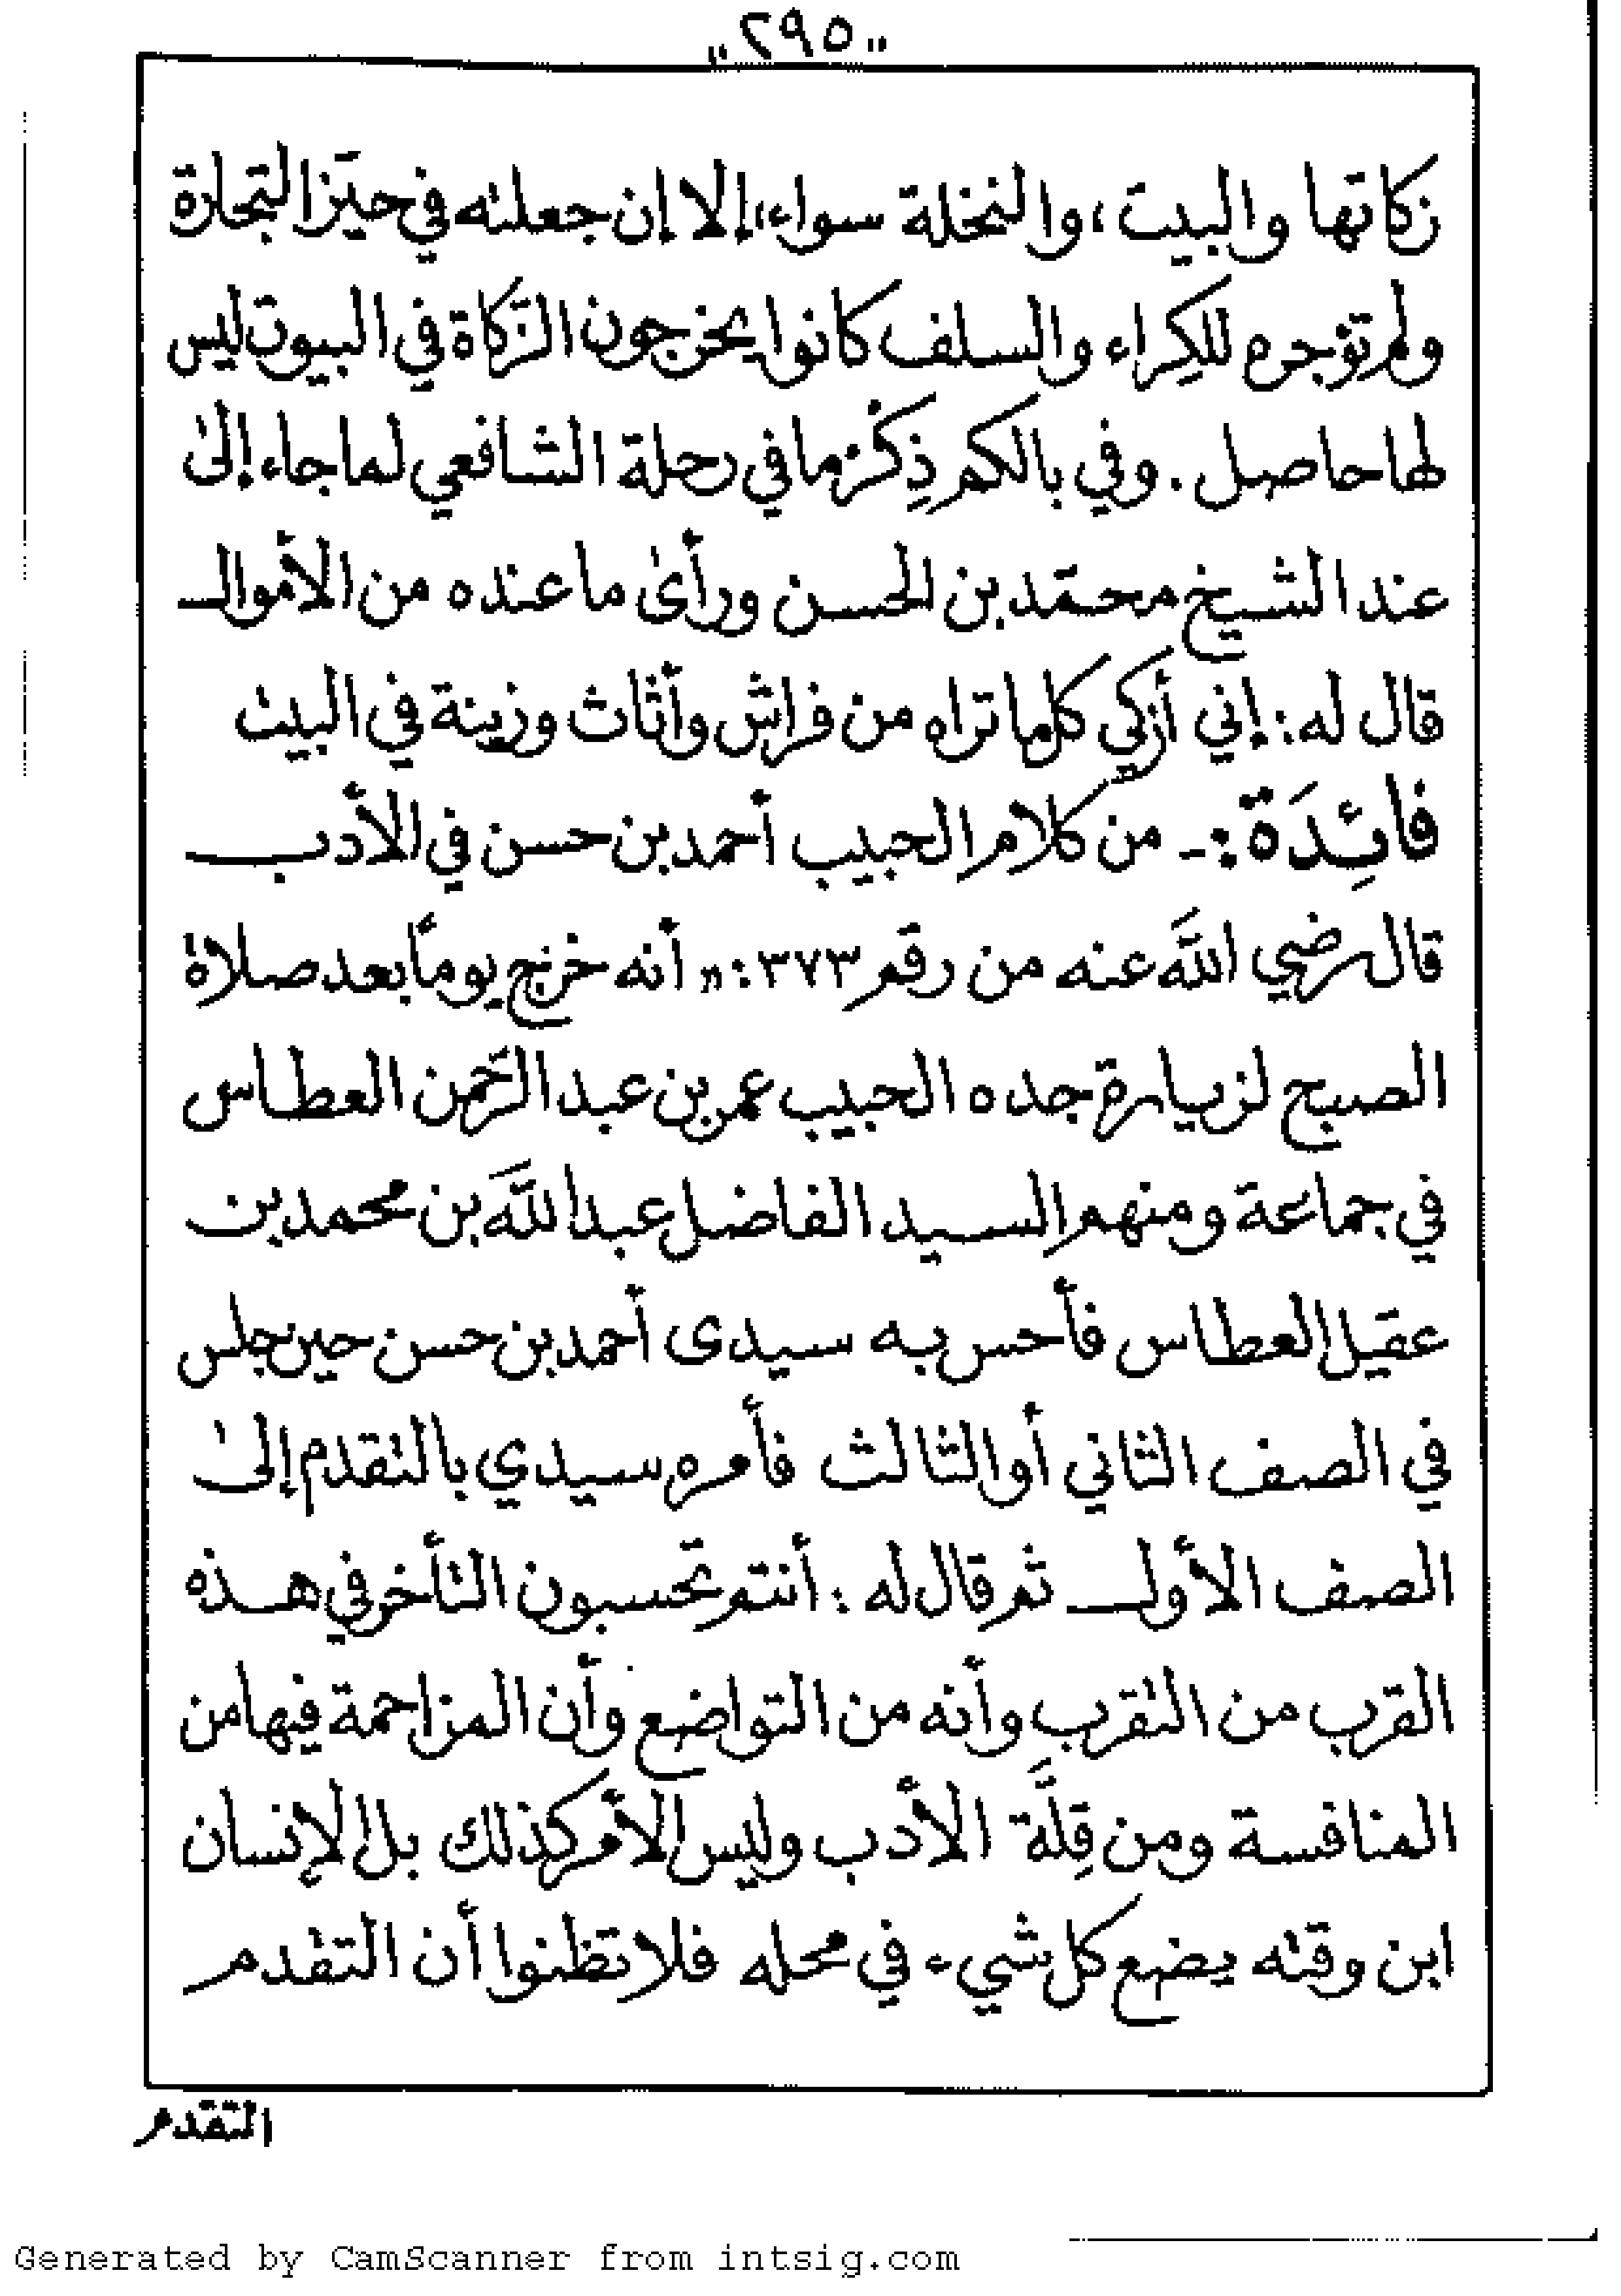 ,,٢٩٥,,
زكاتها والبيت، والنخلة سواء، إلا إن جعلته في حيّز التجارة
ولم تؤجره للكِراء والسلف كانوا يخرجون الزّكاة في البيوت ليس
لها حاصل . وفي بالكم ذِكْرُ ما في رحلة الشافعي لما جاء إلىٰ
عند الشيخ محمّد بن الحسن ورأىٰ ما عنده من الأموال
قال له : إني أزكي كلما تراه من فراش وأثاث وزينة في البيت
فائِدَة :- من كلام الحبيب أحمد بن حسن في الأدب
قال رضي اللَّه عنه من رقم ٣٧٣ : ,, أنه خرج يوماً بعد صلاة
الصبح لزيارة جده الحبيب عمر بن عبد الرّحمن العطاس
في جماعة ومنهم السيد الفاضل عبد اللَّه بن محمد بن
عقيل العطاس فأحس به سيدى أحمد بن حسن حين جلس
في الصف الثاني أو الثالث فأمره سيدي بالتقدم إلىٰ
الصف الأول ثم قال له : أنتم تحسبون التأخر في هذه
القرب من التقرب وأنه من التواضع وأن المزاحمة فيها من
المنافسة ومن قِلَّة الأدب وليس الأمر كذلك بل الإنسان
ابن وقته يضع كل شيء في محله فلا تظنوا أن التقدم
التقدم
Generated by CamScanner from intsig.com